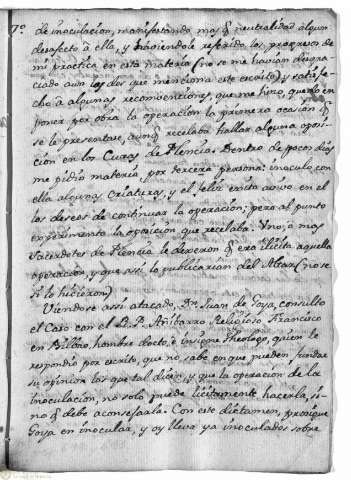 7º
de inoculacion, manifestando mas q neutralidad algun
desafecto à ella, y haviendole referido los progresos de
mi practica en esta materia (no se me havian desgra-
ciado aun los dos que menciona este escrito) y satisfe-
cho à algunas reconvenciones, que me hizo, quedó en
poner por obra la operacion la primera ocasion q
se le presentase, aunq recelaba hallar alguna oposi-
cion en los Curas de Plencia. Dentro de pocos dias
me pidio materia, por tercera persona: inoculo con
ella algunas criaturas, y el feliz exito avivo en el
los deseos de continuar la operacion; pero al punto
experimento la oposicion que recelaba. Uno, ó mas
Sacerdotes de Plencia le dixeron q era ilicita aquella
operacion, y que assi lo publicarian del Altar (no se
si lo hicieron)
Viendose assi atacado, Dn. Juan de Goya, consulto
el Caso con el R. P. Añibarro Religioso Francisco
en Bilbao hombre docto, è insigne Theologo, quien le
respondió por escrito, que no sabe en que pueden fundar
su opinion los que tal dicen, y que la operacion de la
inoculacion, no solo puede licitamente hacerla, si-
no q debe aconsejarla. Con este dictamen, prosigue
Goya en inocular, y oy lleva ya inoculados sobre